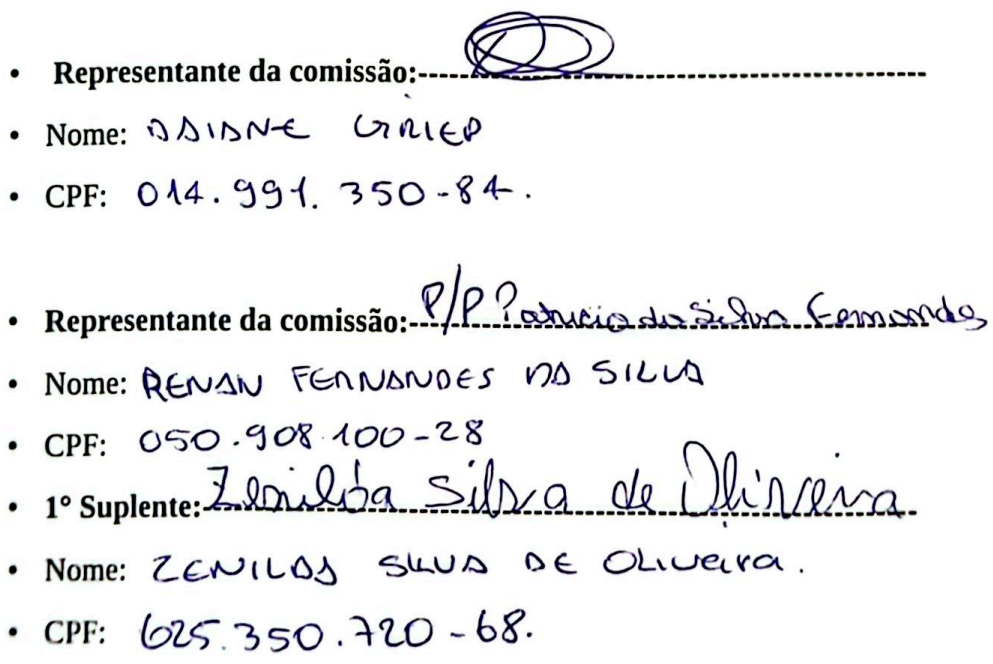 • Representante da comissão:
• Nome: DAIANE GRIEP
• CPF: 014.991.350-84.
• Representante da comissão: P/P Patricia da Silva Fernandes
• Nome: RENAN FERNANDES DA SILVA
• CPF: 050.908.100-28
• 1º Suplente: Zenilda Silva de Oliveira
• Nome: ZENILDA SILVA DE OLIVEIRA.
• CPF: 625.350.720-68.